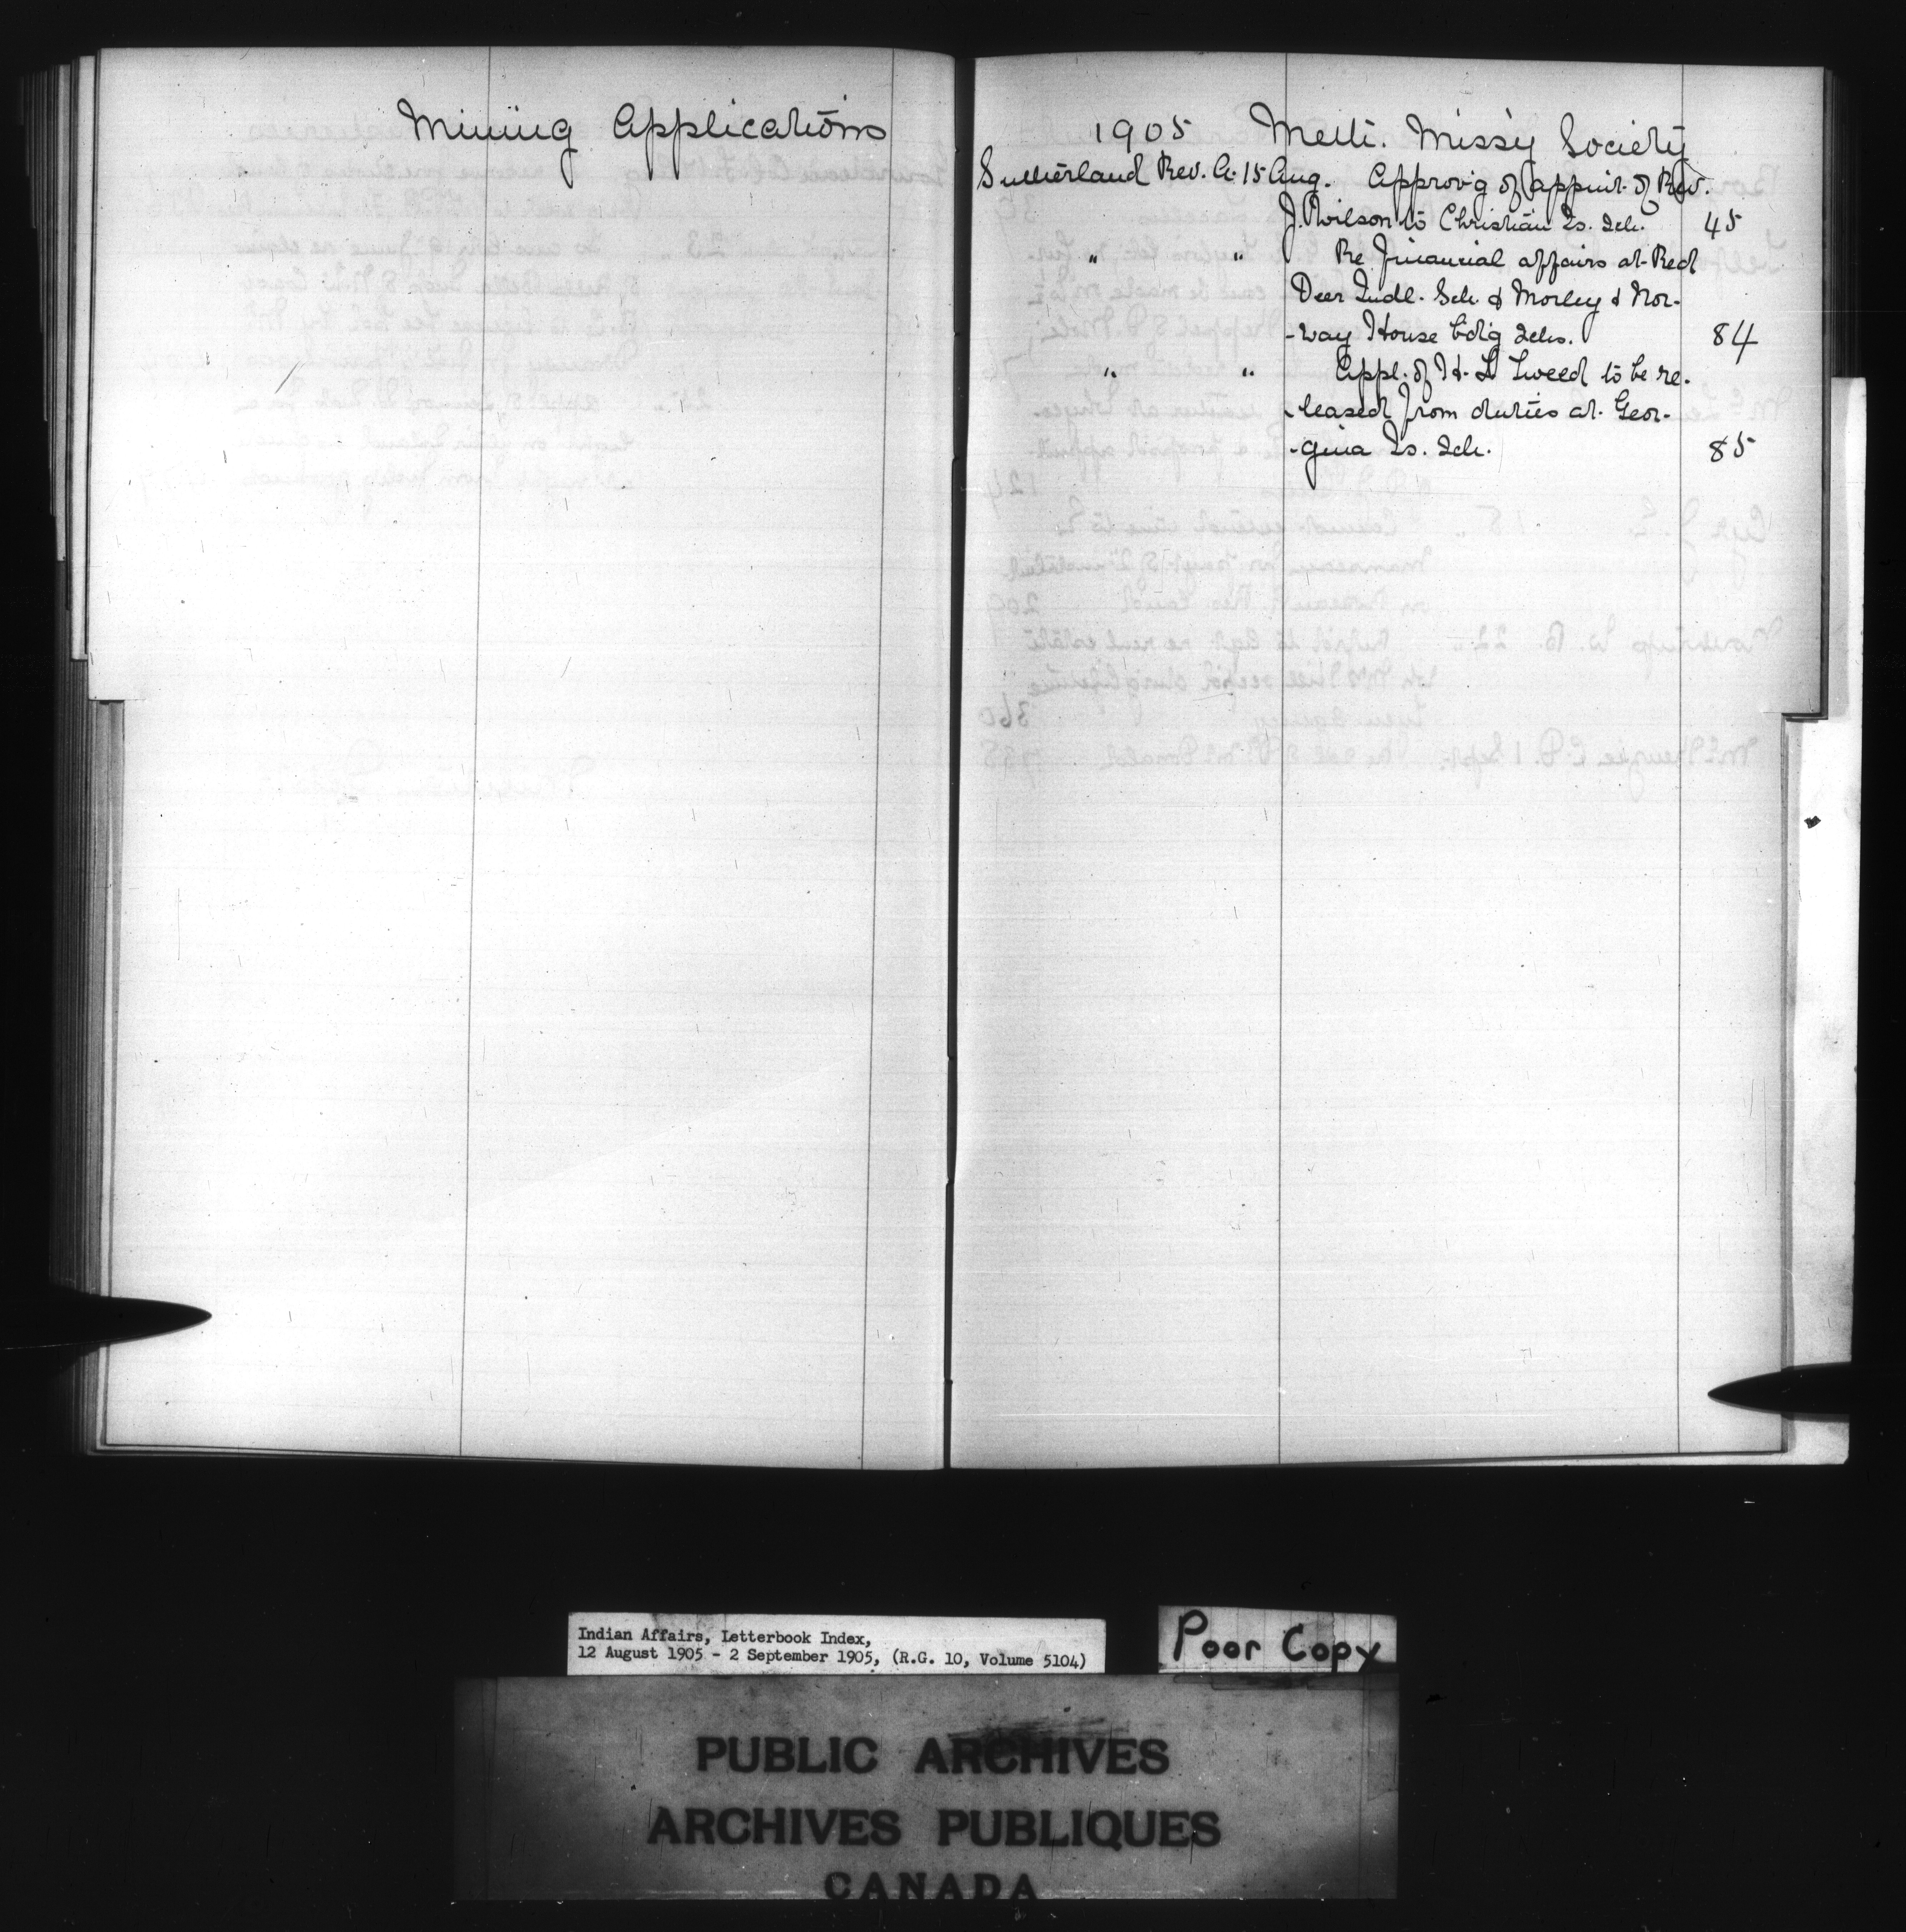 Mining Applications
1905 Meth. Missy Society
Sutherland Rev. A. 15 Aug. Approv'g of appoint. of Rev.
J. Wilson to Christian Is. Sch. 45
" " Re financial affairs at Red
Deer Indl. Sch. & Morley & Nor-
-way House bdig Schs. 84
" " Appl. of H. L Tweed to be re-
-leased from duties at Geor-
-gina Is. Sch. 85
Indian Affairs, Letterbook Index,
12 August 1905 - 2 September 1905, (R.G. 10, Volume 5104)
Poor Copy
PUBLIC ARCHIVES
ARCHIVES PUBLIQUES
CANADA